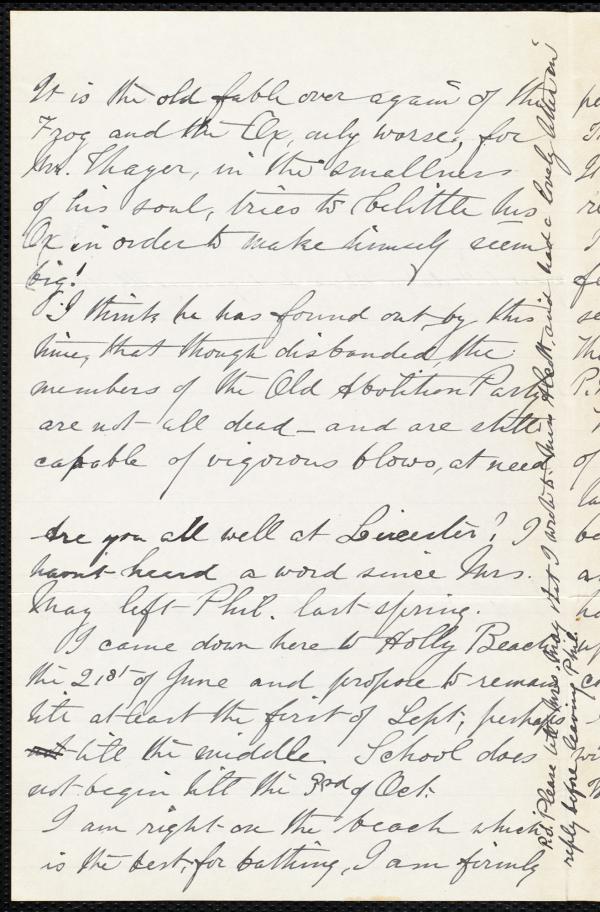 It is the old fable over again of the
Frog and the Ox, only worse, for
Mr. Thayer, in the smallness
of his soul, tries to belittle his
Ox in order to make himself seem
big!
I think he has found out by this
time, that though disbanded, the
members of the Old Abolition Party
are not all dead - and are still
capable of vigorous blows, at need
Are you all well at Leicester? I
havn't heard a word since Mrs.
May left Phil. last spring.
I came down here to Holly Beach
the 21st of June and propose to remain
till at least the first of Sept, perhaps
till the middle. School does
not begin till the 3rd of Oct.
I am right on the beach which
is the best, for bathing, I am firmly
P.S. Please tell Mrs. May that I wrote to Miss and had a lovely letter in
reply before leaving Phil.